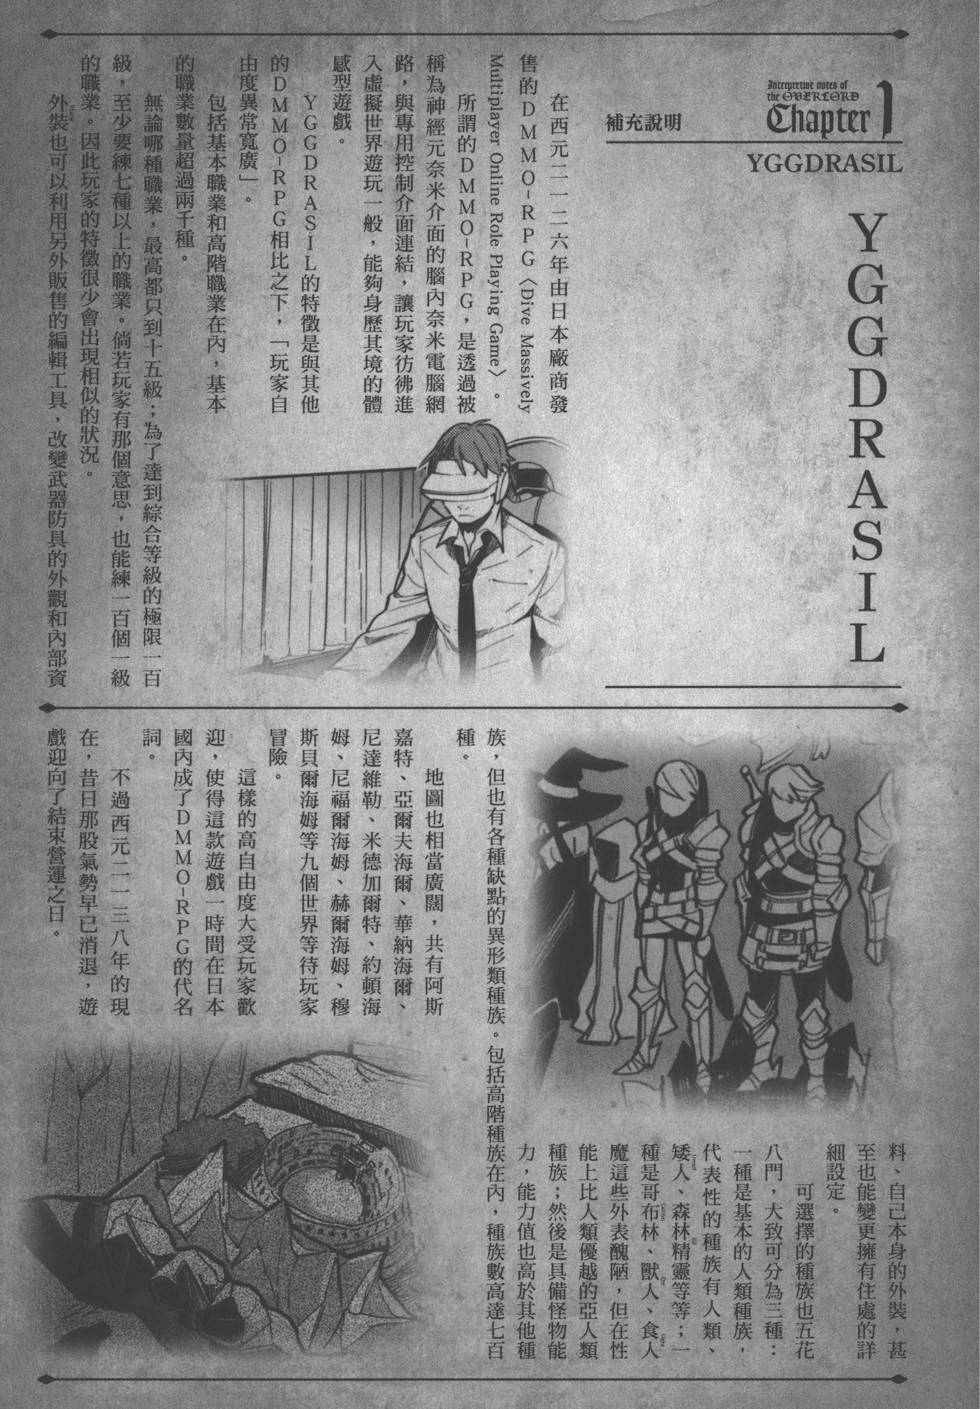 Interpretive notes of
the OVERLORD
Chapter 1
補充說明
YGGDRASIL
YGGDRASIL
在西元二一二六年由日本廠商發
售的DMMO-RPG〈Dive Massively
Multiplayer Online Role Playing Game〉。
所謂的DMMO-RPG，是透過被
稱為神經元奈米介面的腦內奈米電腦網
路，與專用控制介面連結，讓玩家彷彿進
入虛擬世界遊玩一般，能夠身歷其境的體
感型遊戲。
YGGDRASIL的特徵是與其他
的DMMO-RPG相比之下，「玩家自
由度異常寬廣」。
包括基本職業和高階職業在內，基本
的職業數量超過兩千種。
無論哪種職業，最高都只到十五級；為了達到綜合等級的極限一百
級，至少要練七種以上的職業。倘若玩家有那個意思，也能練一百個一級
的職業。因此玩家的特徵很少會出現相似的狀況。
外裝也可以利用另外販售的編輯工具，改變武器防具的外觀和內部資
料、自己本身的外裝，甚
至也能變更擁有住處的詳
細設定。
可選擇的種族也五花
八門，大致可分為三種：
一種是基本的人類種族，
代表性的種族有人類、
矮人、森林精靈等等；一
種是哥布林、獸人、食人
魔這些外表醜陋，但在性
能上比人類優越的亞人類
種族；然後是具備怪物能
力，能力值也高於其他種
族，但也有各種缺點的異形類種族。包括高階種族在內，種族數高達七百
種。
地圖也相當廣闊，共有阿斯
嘉特、亞爾夫海爾、華納海爾、
尼達維勒、米德加爾特、約頓海
姆、尼福爾海姆、赫爾海姆、穆
斯貝爾海姆等九個世界等待玩家
冒險。
這樣的高自由度大受玩家歡
迎，使得這款遊戲一時間在日本
國內成了DMMO-RPG的代名
詞。
不過西元二一三八年的現
在，昔日那股氣勢早已消退，遊
戲迎向了結束營運之日。